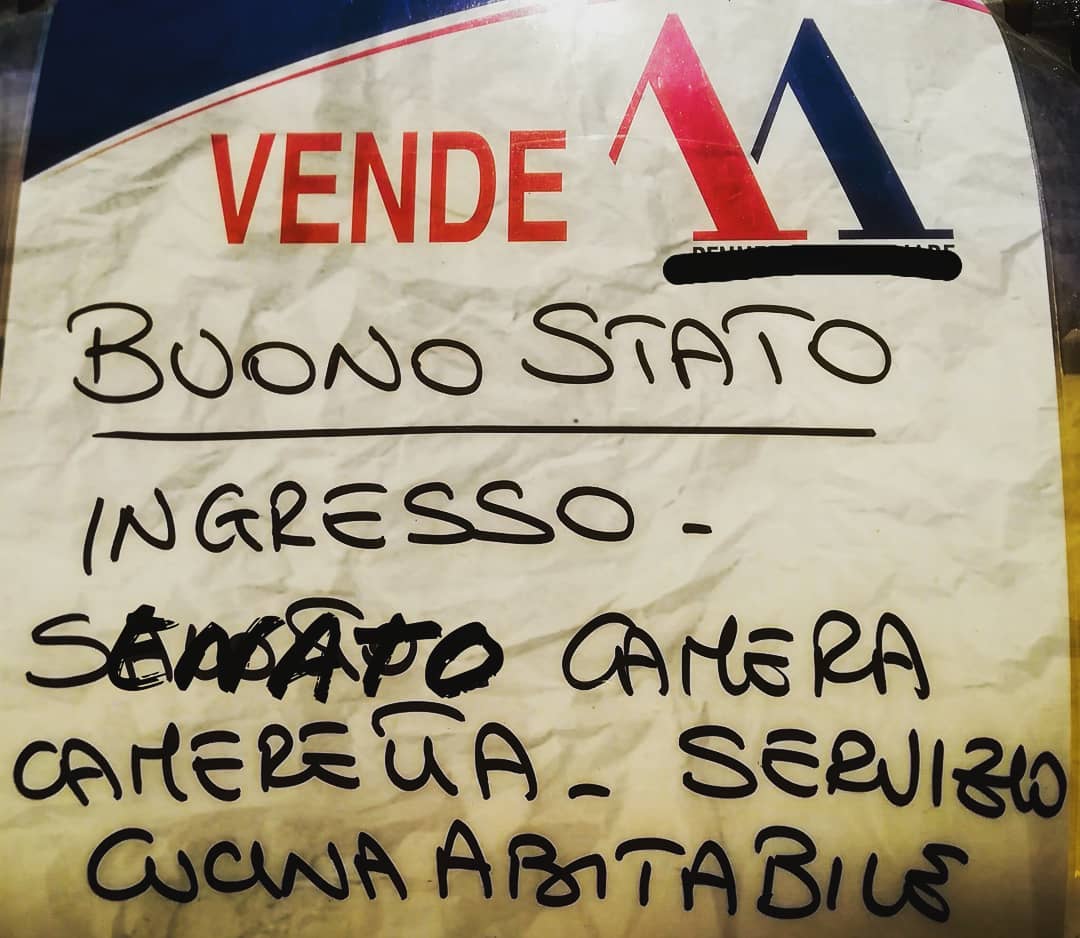 VENDE
BUONO STATO
INGRESSO -
CAMERA
CAMERETTA - SERVIZIO
CUCINA ABITABILE